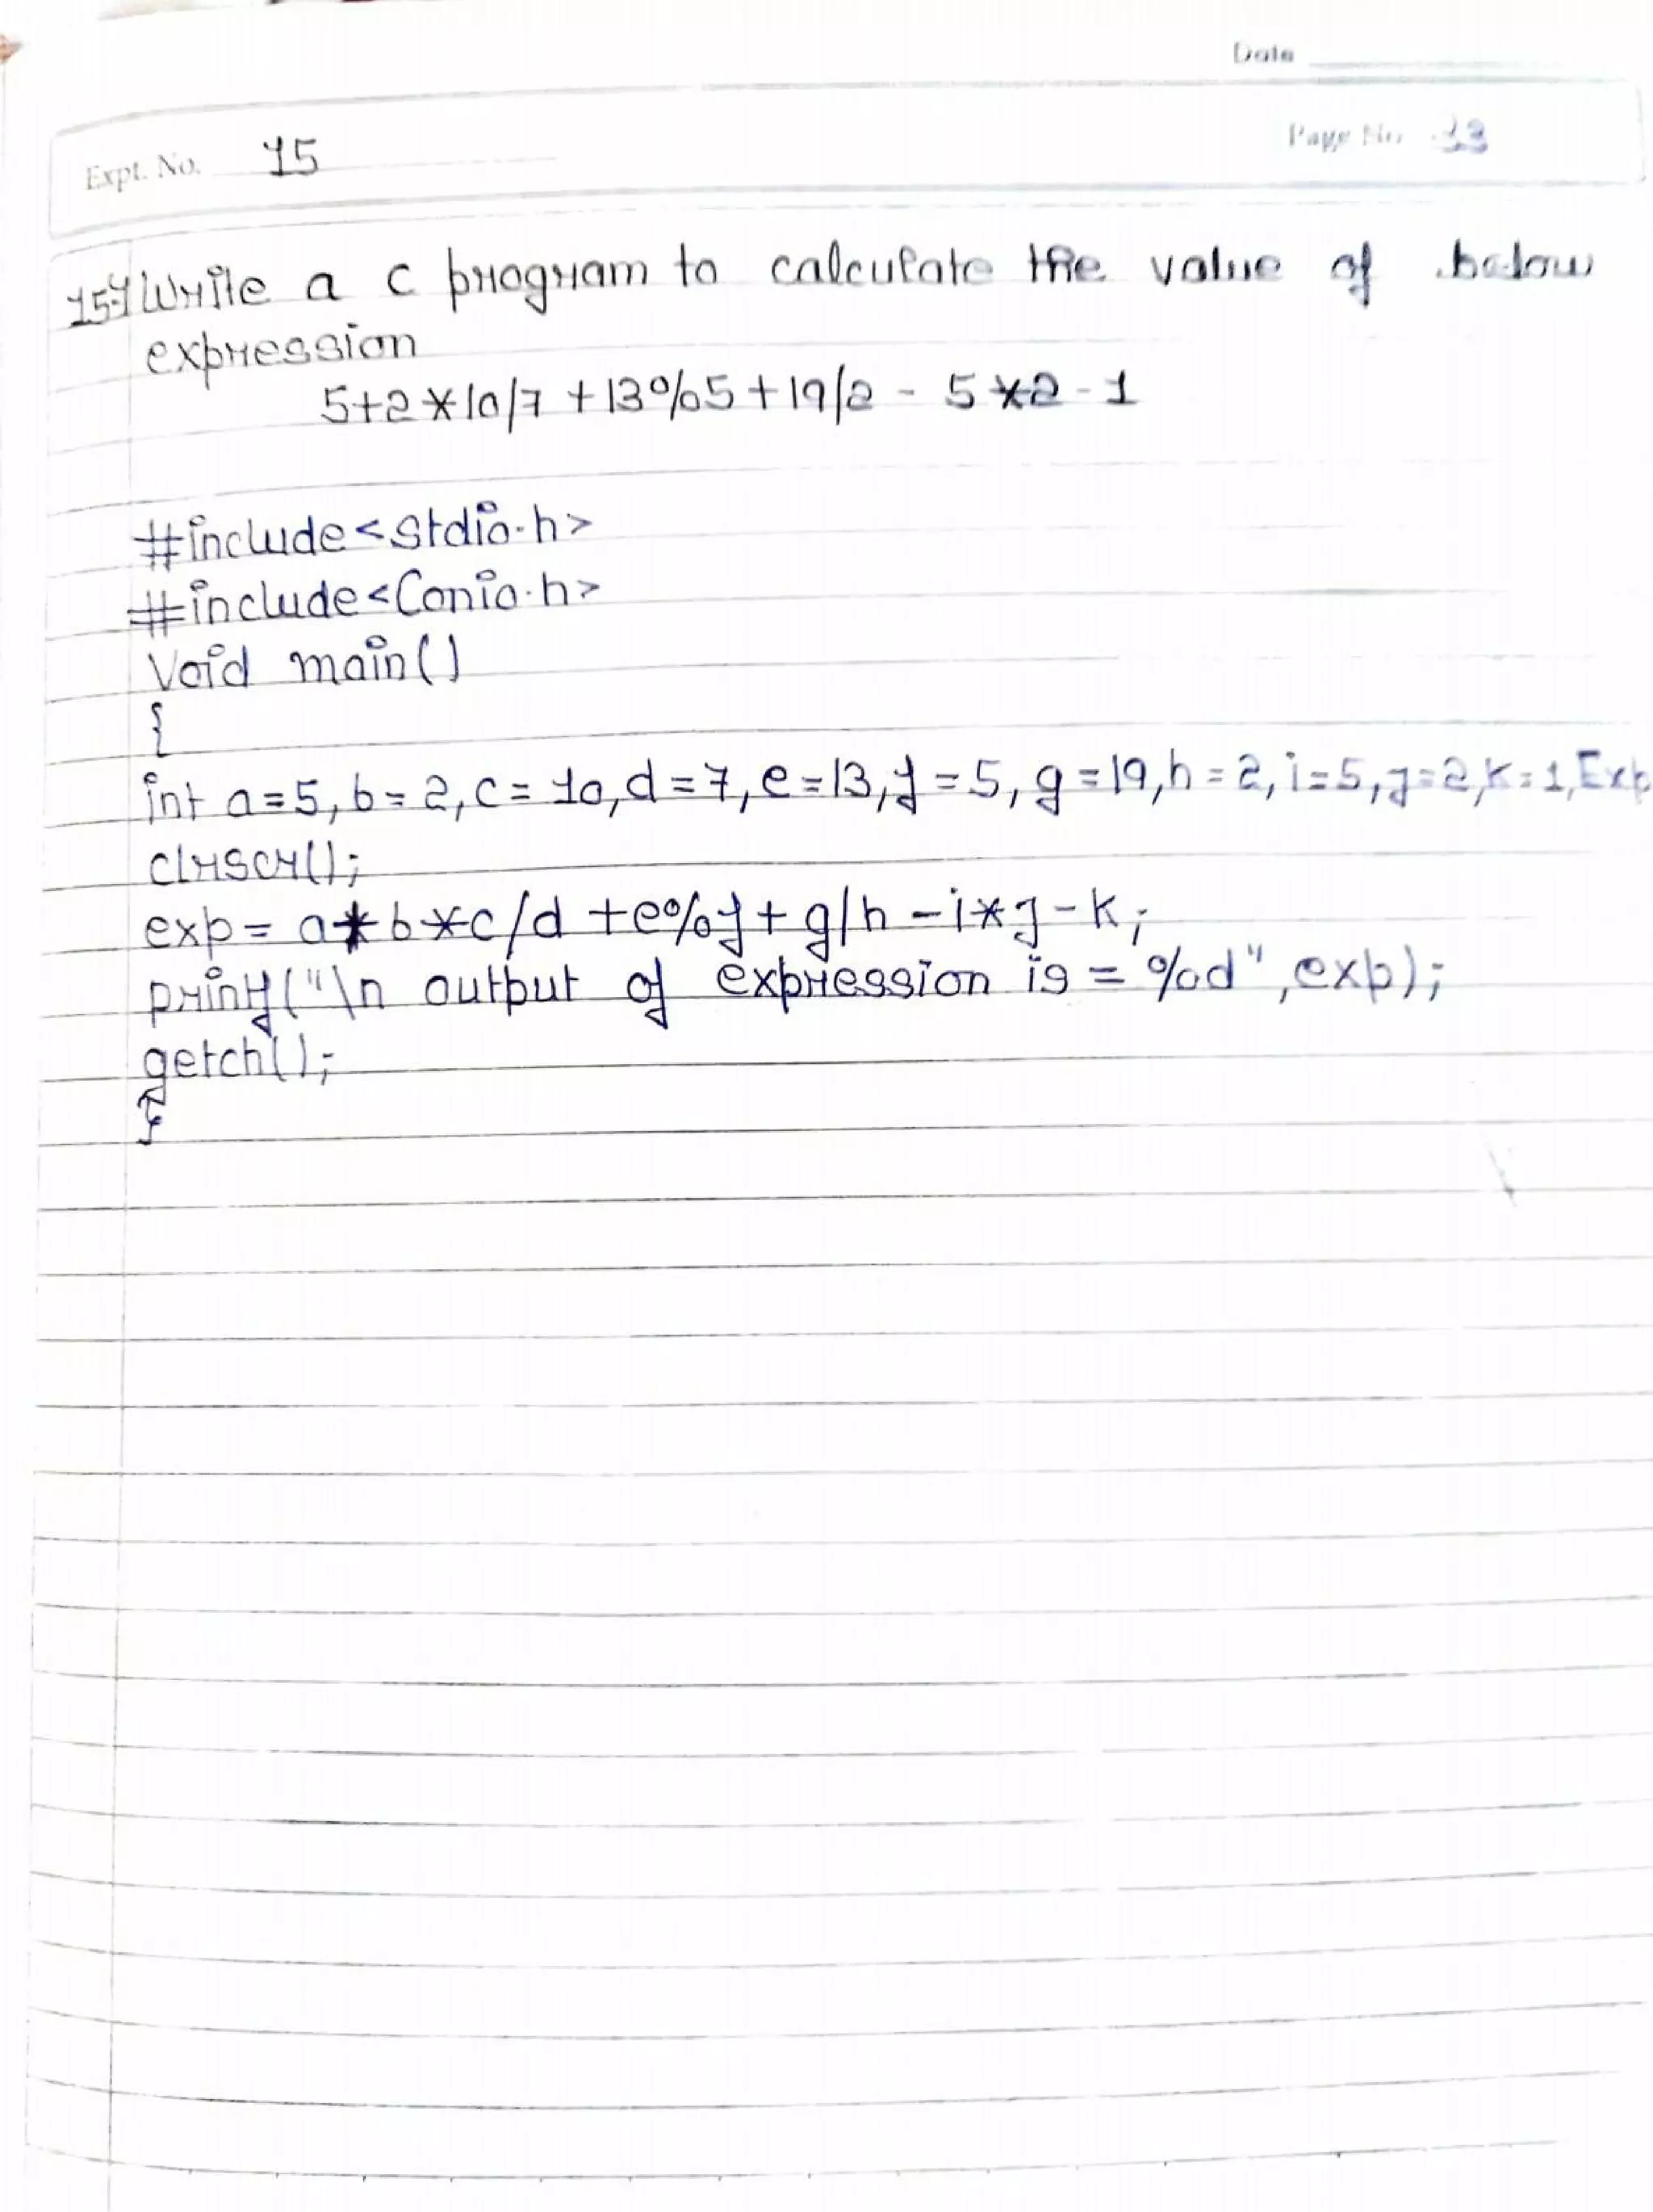 Date
Expt. No. 15
Page No. 13
15→ Write a c program to calculate the value of below
expression
5+2*10/7 +13%5+19/2 - 5*2-1
#include<stdio.h>
#include<Conio.h>
Void main()
{
int a=5,b=2,c=10,d=7,e=13,f=5,g=19,h=2,i=5,j=2,k=1,Exp
clrscr();
exp= a*b*c/d +e%f+g/h -i*j-k;
printf("\n output of expression is = %d",exp);
getch();
}